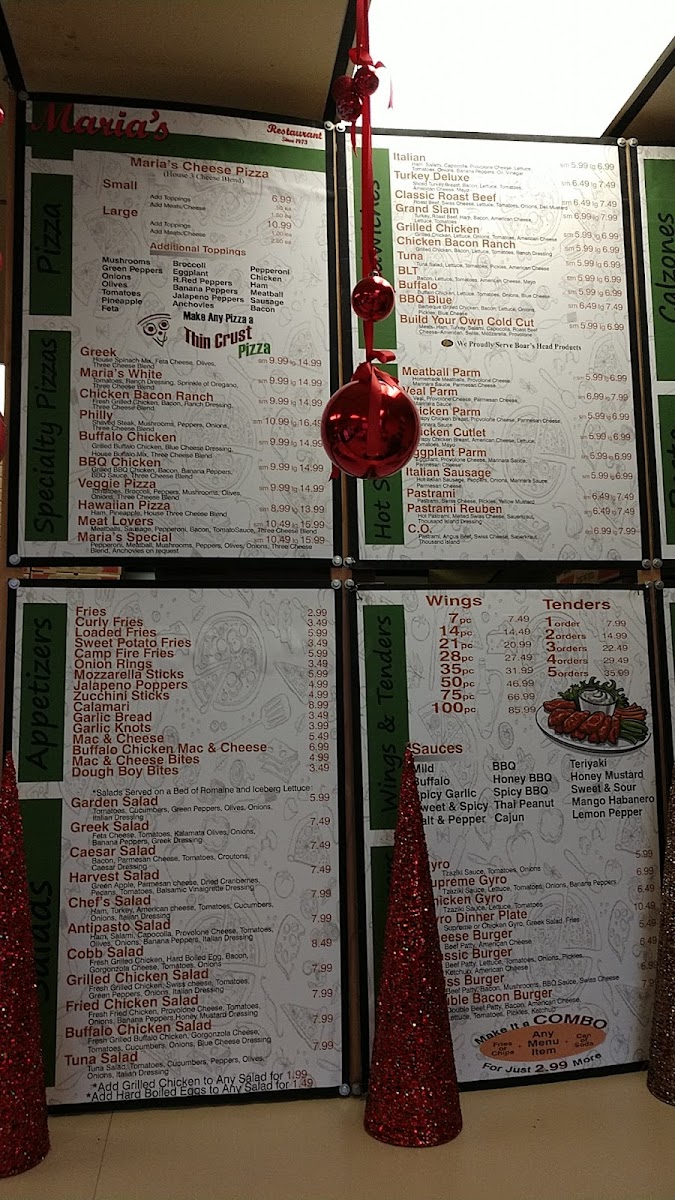 Maria's
Restaurant
Since 1973
Pizza
Maria's Cheese Pizza
(House 3 Cheese Blend)
Small 6.99
Add Toppings .50 ea
Add Meats/Cheese 1.50 ea
Large 10.99
Add Toppings
Add Meats/Cheese
Additional Toppings
Mushrooms Broccoli Pepperoni
Green Peppers Eggplant Chicken
Onions H.Red Peppers Ham
Olives Banana Peppers Meatball
Tomatoes Jalapeno Peppers Sausage
Pineapple Anchovies Bacon
Feta
Make Any Pizza a
Thin Crust
Pizza
Specialty Pizzas
Greek sm 9.99 lg 14.99
House Spinach Mix, Feta Cheese, Olives,
Three Cheese Blend
Maria's White sm 9.99 lg 14.99
Tomatoes, Ranch Dressing, Sprinkle of Oregano,
Three Cheese Blend
Chicken Bacon Ranch sm 9.99 lg 14.99
Fresh Grilled Chicken, Bacon, Ranch Dressing,
Three Cheese Blend
Philly sm 10.99 lg 16.49
Shaved Steak, Mushrooms, Peppers, Onions,
Three Cheese Blend
Buffalo Chicken sm 9.99 lg 14.99
Grilled Buffalo Chicken, Blue Cheese Dressing,
House Buffalo Mix, Three Cheese Blend
BBQ Chicken sm 9.99 lg 14.99
Grilled BBQ Chicken, Bacon, Banana Peppers,
BBQ Sauce, Three Cheese Blend
Veggie Pizza sm 9.99 lg 14.99
Tomatoes, Broccoli, Peppers, Mushrooms, Olives,
Onions, Three Cheese Blend
Hawaiian Pizza sm 8,99 lg 13.99
Ham, Pineapple, House Three Cheese Blend
Meat Lovers sm 10.49 lg 16.99
Meatballs, Sausage, Pepperoni, Bacon, TomatoSauce, Three Cheese Blend
Maria's Special sm 10.49 lg 15.99
Pepperoni, Meatball, Mushrooms, Peppers, Olives, Onions, Three Cheese
Blend, Anchovies on request
Italian sm 5.99 lg 6.99
Ham, Salami, Capocolla, Provolone Cheese, Lettuce,
Tomatoes, Onions, Banana Peppers, Oil, Vinegar
Turkey Deluxe sm 6.49 lg 7.49
Sliced Turkey Breast, Bacon, Lettuce, Tomatoes,
American Cheese, Mayo
Classic Roast Beef sm 6.49 lg 7.49
Roast Beef, Swiss Cheese, Lettuce, Tomatoes, Onions, Deli Mustard
Grand Slam sm 6.99 lg 7.99
Turkey, Roast Beef, Ham, Bacon, American Cheese,
Lettuce, Tomatoes
Grilled Chicken
Grilled Chicken, Lettuce, Onions, Tomatoes, American Cheese
Chicken Bacon Ranch
Grilled Chicken, Bacon, Lettuce, Tomatoes, Ranch Dressing
Tuna
Tuna Salad, Lettuce, Tomatoes, Pickles, American Cheese
BLT
Bacon, Lettuce, Tomatoes, American Cheese, Mayo
Buffalo
Buffalo Chicken, Lettuce, Tomatoes, Onions, Blue Cheese
BBQ Blue sm 6.49 lg 7.49
Barbeque Grilled Chicken, Bacon, Lettuce, Onions,
Pickles, Blue Cheese
Build Your Own Cold Cut sm 5.99 lg 6.99
Meats- Ham, Turkey, Salami, Capocolla, Roast Beef
Cheese- American, Swiss, Mozzarella, Provolone
We Proudly Serve Boar's Head Products
Hot S
Meatball Parm sm 5.99 lg 6.99
Homemade Meatballs, Provolone Cheese,
Marinara Sauce, Parmesan Cheese
Veal Parm
Marinara Sauce
Chicken Parm
Chicken Cutlet
Tomatoes, Mayo
Eggplant Parm
Parmesan Cheese
Italian Sausage sm 5.99 lg 6.99
Hot Italian Sausage, Peppers, Onions, Marinara Sauce
Parmesan Cheese
Pastrami sm 6.49 lg 7.49
Pastrami, Swiss Cheese, Pickles, Yellow Mustard
Pastrami Reuben sm 6.49 lg 7.49
Hot Pastrami, Melted Swiss Cheese, Sauerkraut,
Thousand Island Dressing
C.O. sm 6.99 lg 7.99
Pastrami, Angus Beef, Swiss Cheese, Sauerkraut,
Thousand Island
Calzones
Appetizers
Fries 2.99
Curly Fries 3.49
Loaded Fries 5.99
Sweet Potato Fries 3.49
Camp Fire Fries 5.99
Onion Rings 3.49
Mozzarella Sticks 5.99
Jalapeno Poppers 4.99
Zucchini Sticks 4.99
Calamari 8.99
Garlic Bread 3.49
Garlic Knots 3.99
Mac & Cheese 5.49
Buffalo Chicken Mac & Cheese 6.99
Mac & Cheese Bites 4.99
Dough Boy Bites 3.49
Salads
*Salads Served on a Bed of Romaine and Iceberg Lettuce
Garden Salad 5.99
Tomatoes, Cucumbers, Green Peppers, Olives, Onions,
Italian Dressing
Greek Salad 7.49
Feta Cheese, Tomatoes, Kalamata Olives, Onions,
Banana Peppers, Greek Dressing
Caesar Salad 7.49
Bacon, Parmesan Cheese, Tomatoes, Croutons,
Caesar Dressing
Harvest Salad 7.49
Green Apple, Parmesan cheese, Dried Cranberries,
Pecans, Tomatoes, Balsamic Vinaigrette Dressing
Chef's Salad 7.99
Ham, Turkey, American cheese, Tomatoes, Cucumbers,
Onions, Italian Dressing
Antipasto Salad 7.99
Ham, Salami, Capocolla, Provolone Cheese, Tomatoes,
Olives, Onions, Banana Peppers, Italian Dressing
Cobb Salad 8.49
Fresh Grilled Chicken, Hard Boiled Egg, Bacon,
Gorgonzola Cheese, Tomatoes, Onions
Grilled Chicken Salad 7.99
Fresh Grilled Chicken, Swiss cheese, Tomatoes,
Green Peppers, Onions, Italian Dressing
Fried Chicken Salad 7.99
Fresh Fried Chicken, Provolone Cheese, Tomatoes,
Onions, Banana Peppers, Honey Mustard Dressing
Buffalo Chicken Salad 7.99
Fresh Grilled Buffalo Chicken, Gorgonzola Cheese,
Tomatoes, Cucumbers, Onions, Blue Cheese Dressing
Tuna Salad 7.99
Tuna Salad, Tomatoes, Cucumbers, Peppers, Olives,
Onions, Italian Dressing
*Add Grilled Chicken to Any Salad for 1.99
*Add Hard Boiled Eggs to Any Salad for 1.49
Wings & Tenders
Wings Tenders
7pc 7.49 1order 7.99
14pc 14.49 2orders 14.99
21pc 20.99 3orders 22.49
28pc 27.49 4orders 29.49
35pc 31.99 5orders 35.99
50pc 46.99
75pc 66.99
100pc 85.99
Sauces
Mild BBQ Teriyaki
Buffalo Honey BBQ Honey Mustard
Spicy Garlic Spicy BBQ Sweet & Sour
Sweet & Spicy Thai Peanut Mango Habanero
Salt & Pepper Cajun Lemon Pepper
Gyro 5.99
Tzaziki Sauce, Tomatoes, Onions
Supreme Gyro 6.99
Tzaziki Sauce, Lettuce, Tomatoes, Onions, Banana Peppers,
Chicken Gyro 6.49
Tzaziki Sauce, Lettuce, Tomatoes
Gyro Dinner Plate 10.49
Supreme or Chicken Gyro, Greek Salad, Fries
Cheese Burger 5.49
Beef Patty, American Cheese
Classic Burger
Beef Patty, Lettuce, Tomatoes, Onions, Pickles,
Ketchup, American Cheese
Swiss Burger
Beef Patty, Bacon, Mushrooms, BBQ Sauce, Swiss Cheese
Double Bacon Burger
Double Beef Patty, Bacon, American Cheese,
Lettuce, Tomatoes, Pickles, Ketchup
Make It a COMBO
Fries or Chips · Any Menu Item · Can of Soda
For Just 2.99 More